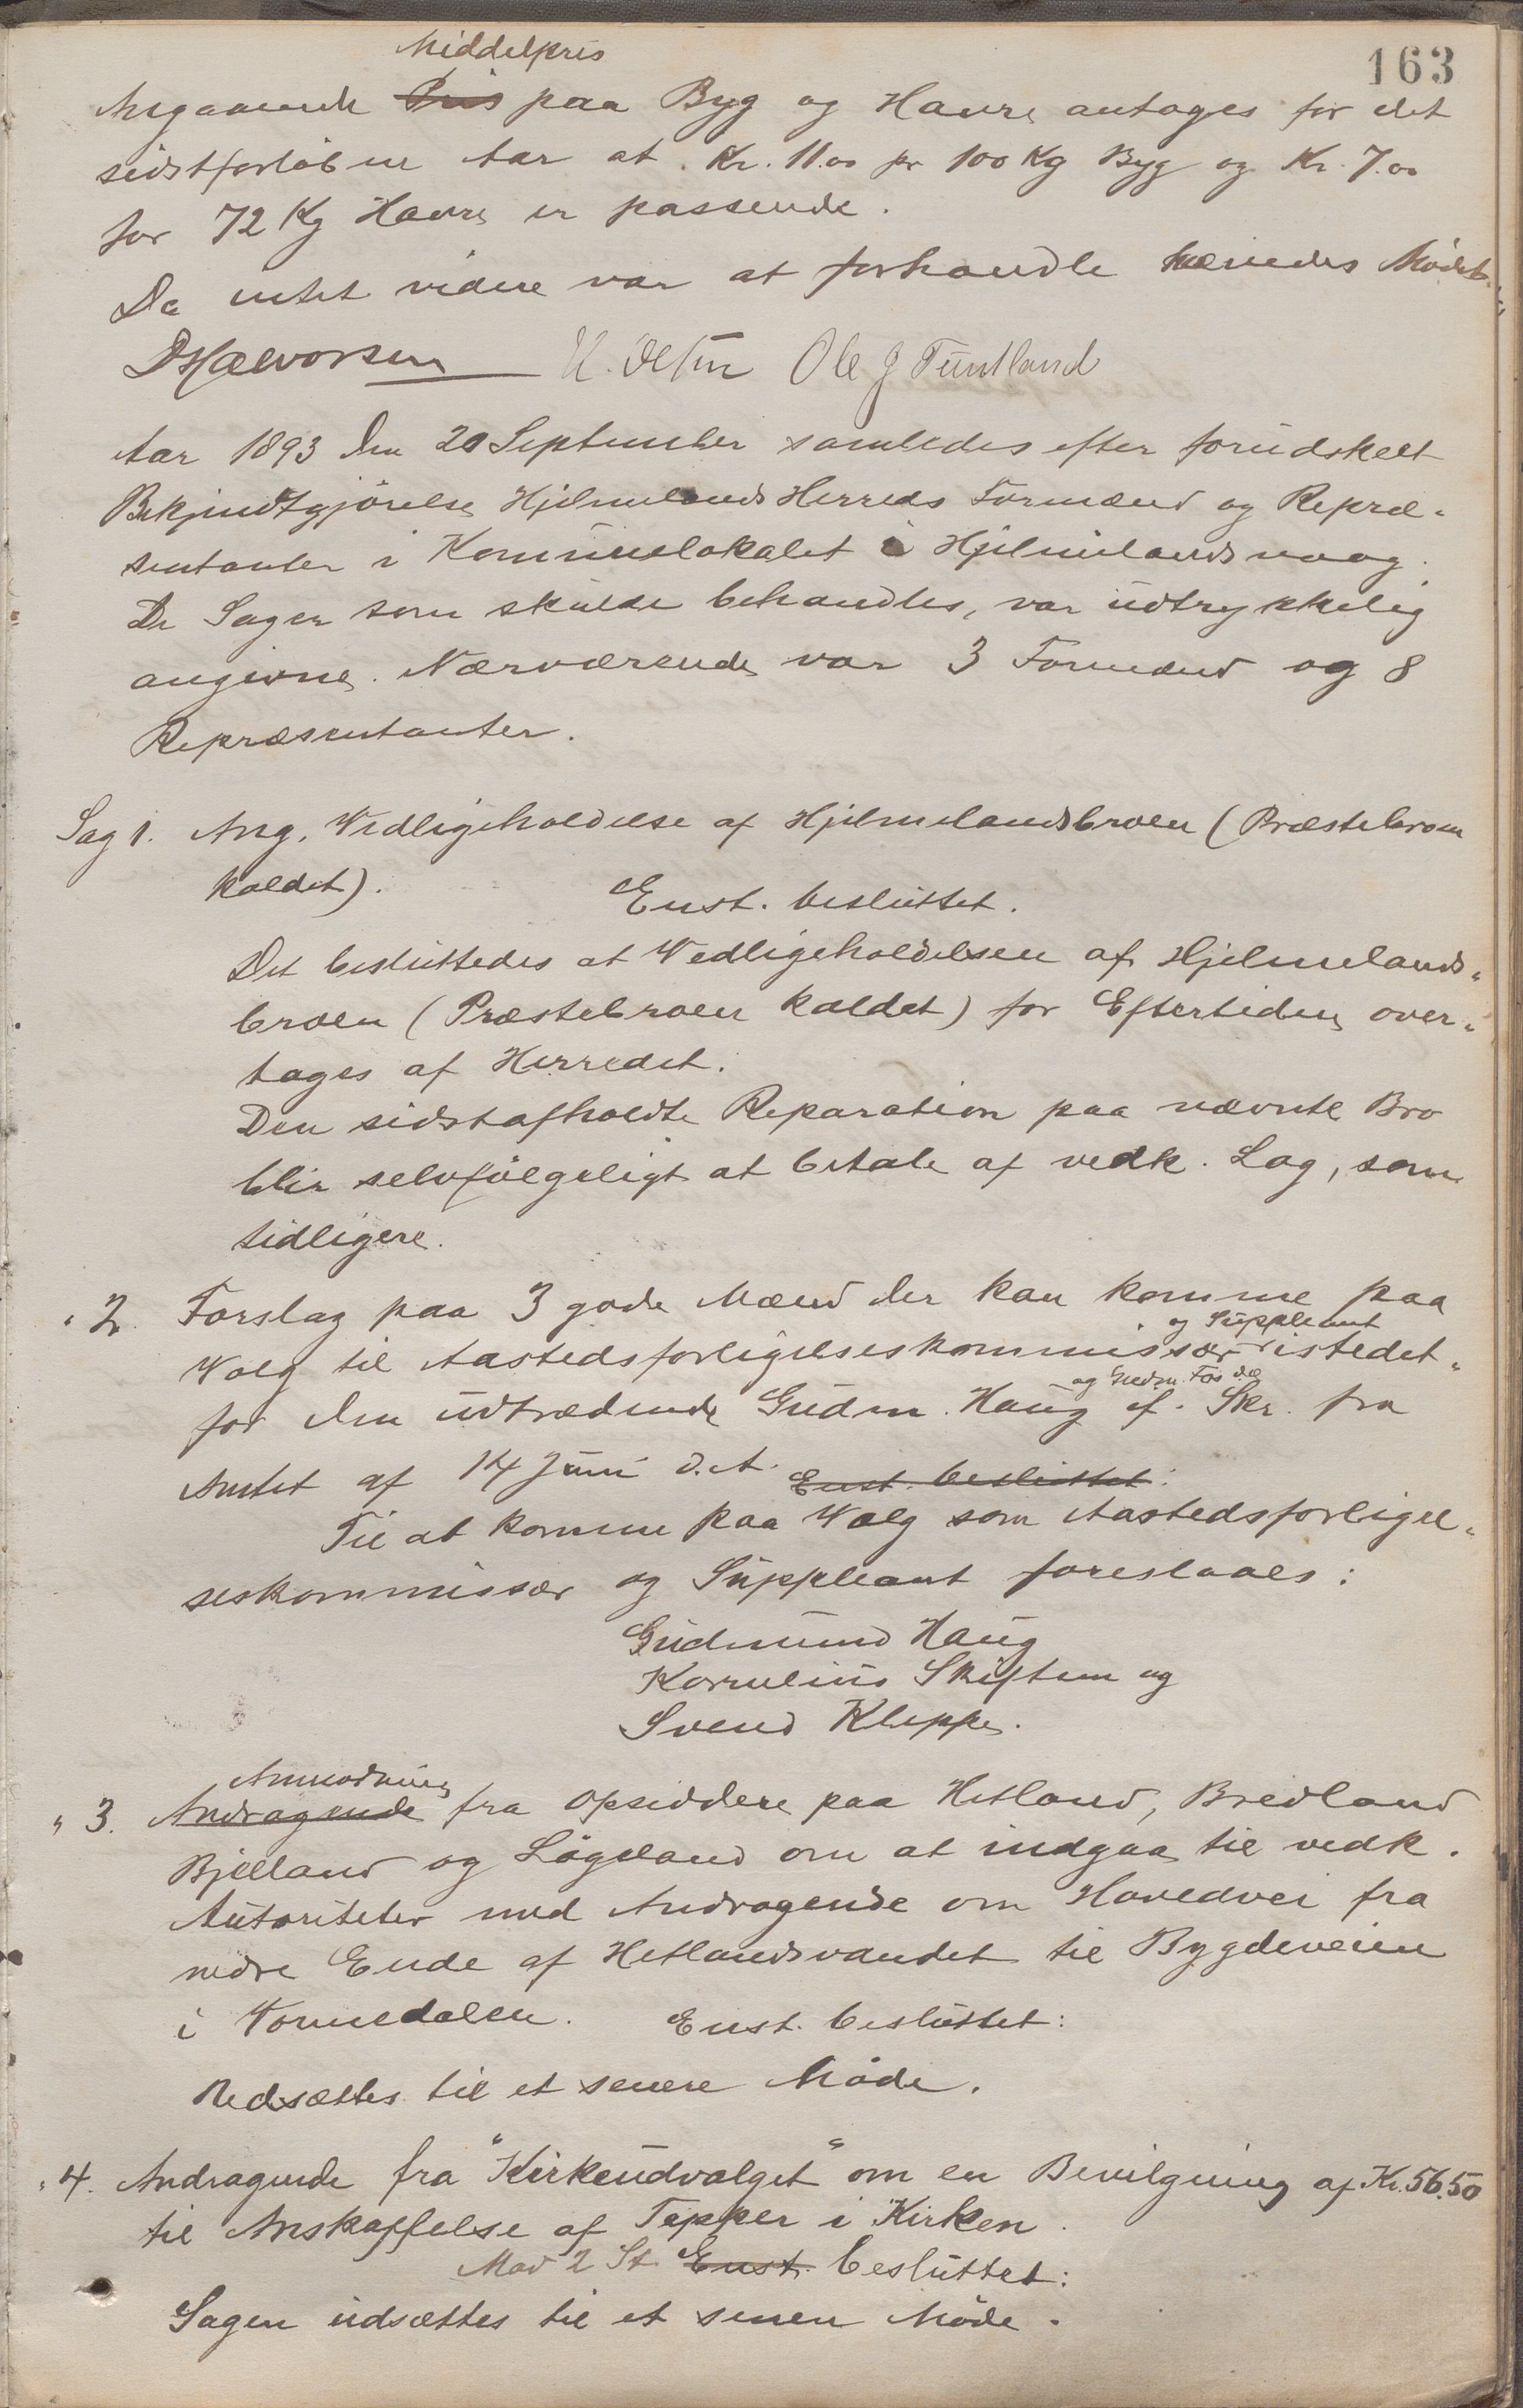 163
Middelpris
Angaaende Pris paa Byg og Havre antages for det
sidstforløbne Aar at Kr. 11.00 pr 100 Kg Byg og Kr. 7.00
for 72 Kg Havre er passende.
Da intet videre var at forhandle hævedes Mødet.
DHalvorsen Ole J Tuntland
Aar 1893 den 20 September samledes efter forudskeet
Bekjendtgjørelse Hjelmelands Herreds Formænd og Repræ-
sentanter i Kommunelokalet i Hjelmelandsvaag.
De Sager som skulde behandles, var udtrykkelig
angivne. Nærværende var 3 Formænd og 8
Repræsentanter.
Sag 1. Ang. Vedligeholdelse af Hjelmelandsbroen (Præstebroen
kaldet).
Enst. besluttet.
Det besluttedes at Vedligeholdelsen af Hjelmelands-
broen (Præstebroen kaldet) for Eftertiden over-
tages af Herredet.
Den sidstafholdte Reparation paa nævnte Bro
blir selvfølgeligt at betale af vedk. Lag, som
tidligere.
" 2. Forslag paa 3 gode Mænd der kan komme paa
og Suppleant
Valg til Aastedsforligelseskommissær istedet-
og Gudm. Fos
for den udtrædende Gudm. Haug cf. Skr. fra
Amtet af 14 Juni d.A. Enst. besluttet:
Til at komme paa Valg som Aastedsforligel-
seskommissær og Suppleant foreslaaes:
Gudmund Haug
Kornelius Skiftun og
Svend Kleppe.
Anmodning
" 3. Andragende fra Opsiddere paa Hetland, Bredland
Bjelland og Løgeland om at indgaa til vedk.
Autoriteter med Andragende om Hovedvei fra
nedre Ende af Hetlandsvandet til Bygdeveien
i Vormedalen. Enst. besluttet:
Udsættes til et senere Møde.
" 4. Andragende fra "Kirkeudvalget" om en Bevilgning af Kr. 56.50
til Anskaffelse af Tepper i Kirken.
Mod 2 St. Enst. besluttet:
Sagen udsættes til et senere Møde.